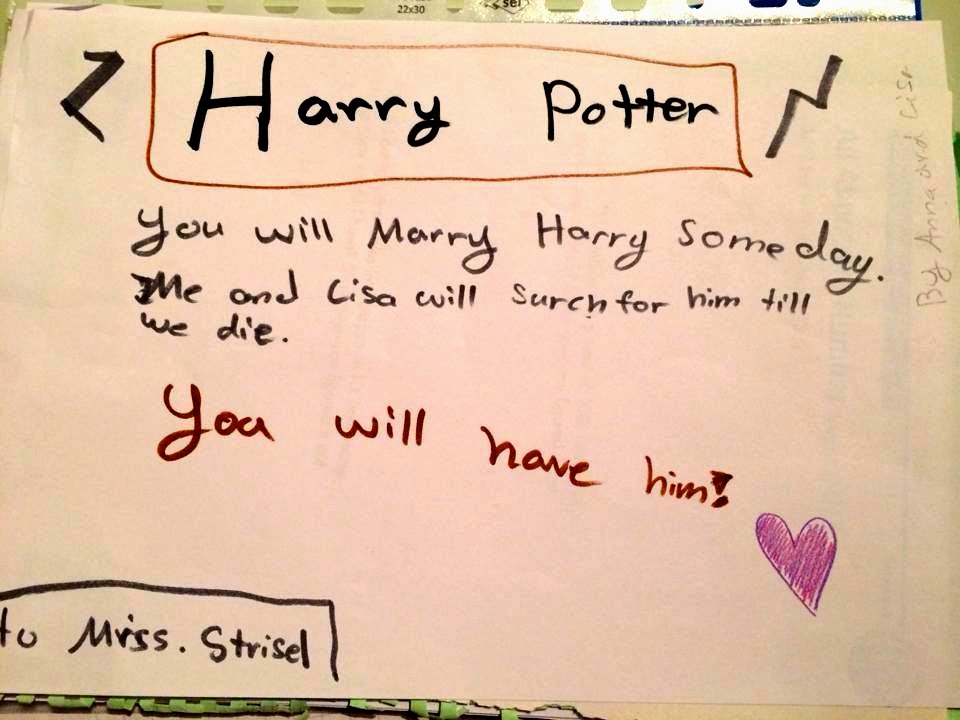 sel
22x30
Harry Potter
You will Marry Harry someday.
Me and Lisa will surch for him till
we die.
You will have him!
to Mriss. Strisel
By Anna and Lisa